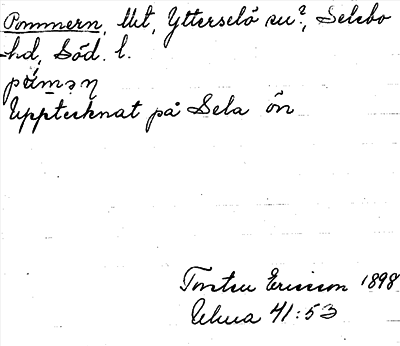 Pommern, llt, Ytterselö sn?, Selebo
hd, Söd. l.
påmən
Upptecknat på Sela ön
Torsten Ericsson 1898
Ulma 41:53